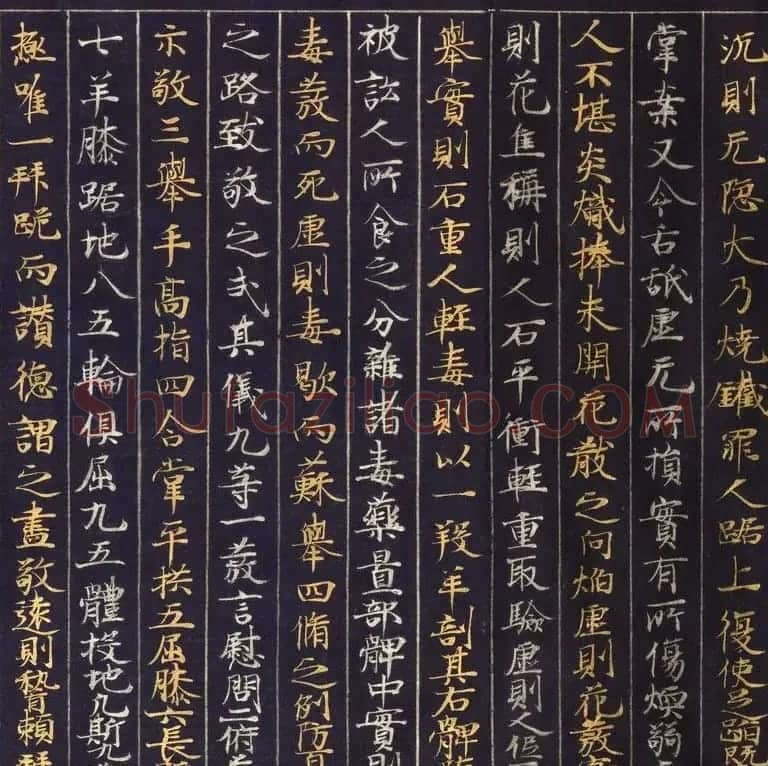 沉則无隐火乃燒鐵罪人踞上復使足蹈既
掌案又令舌舐虛无所損實有所傷煗弱
人不堪炎熾捧未開花散之向焰虛則花發
則花焦稱則人石平衡輕重取驗虛則人低
舉實則石重人輕毒則以一羖羊剖其右髀
被訟人所食之分雜諸毒藥置部髀中實則
毒發而死虛則毒歇而蘇舉四脩之例防
之路致敬之式其儀九等一發言慰問二俯
示敬三舉手高指四合掌平拱五屈膝六長
七羊膝踞地八五輪俱屈九五體投地凡斯九
極唯一拜跪而讃德謂之盡敬遠則𥡴顙拜
Shufaziliao.COM